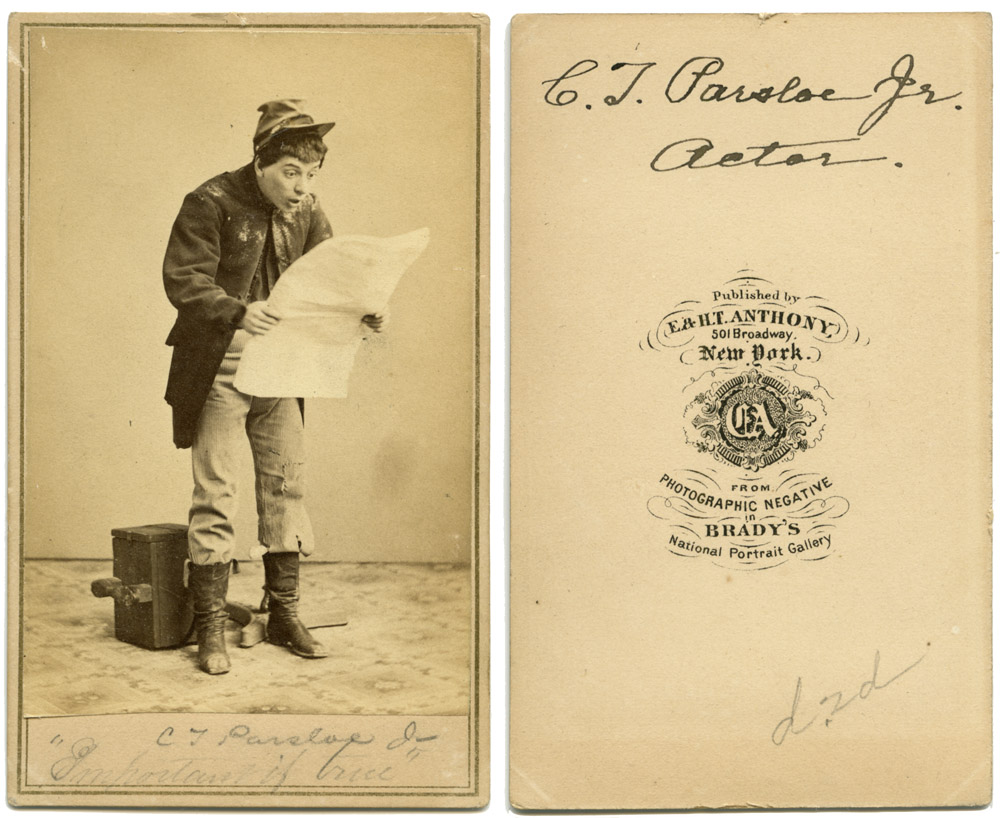 C T Parsloe Jr
"Important if true"
C. T. Parsloe Jr.
Actor.
Published by
E. & H.T. ANTHONY,
501 Broadway.
New York.
E&HTA
FROM
PHOTOGRAPHIC NEGATIVE
in
BRADY'S
National Portrait Gallery